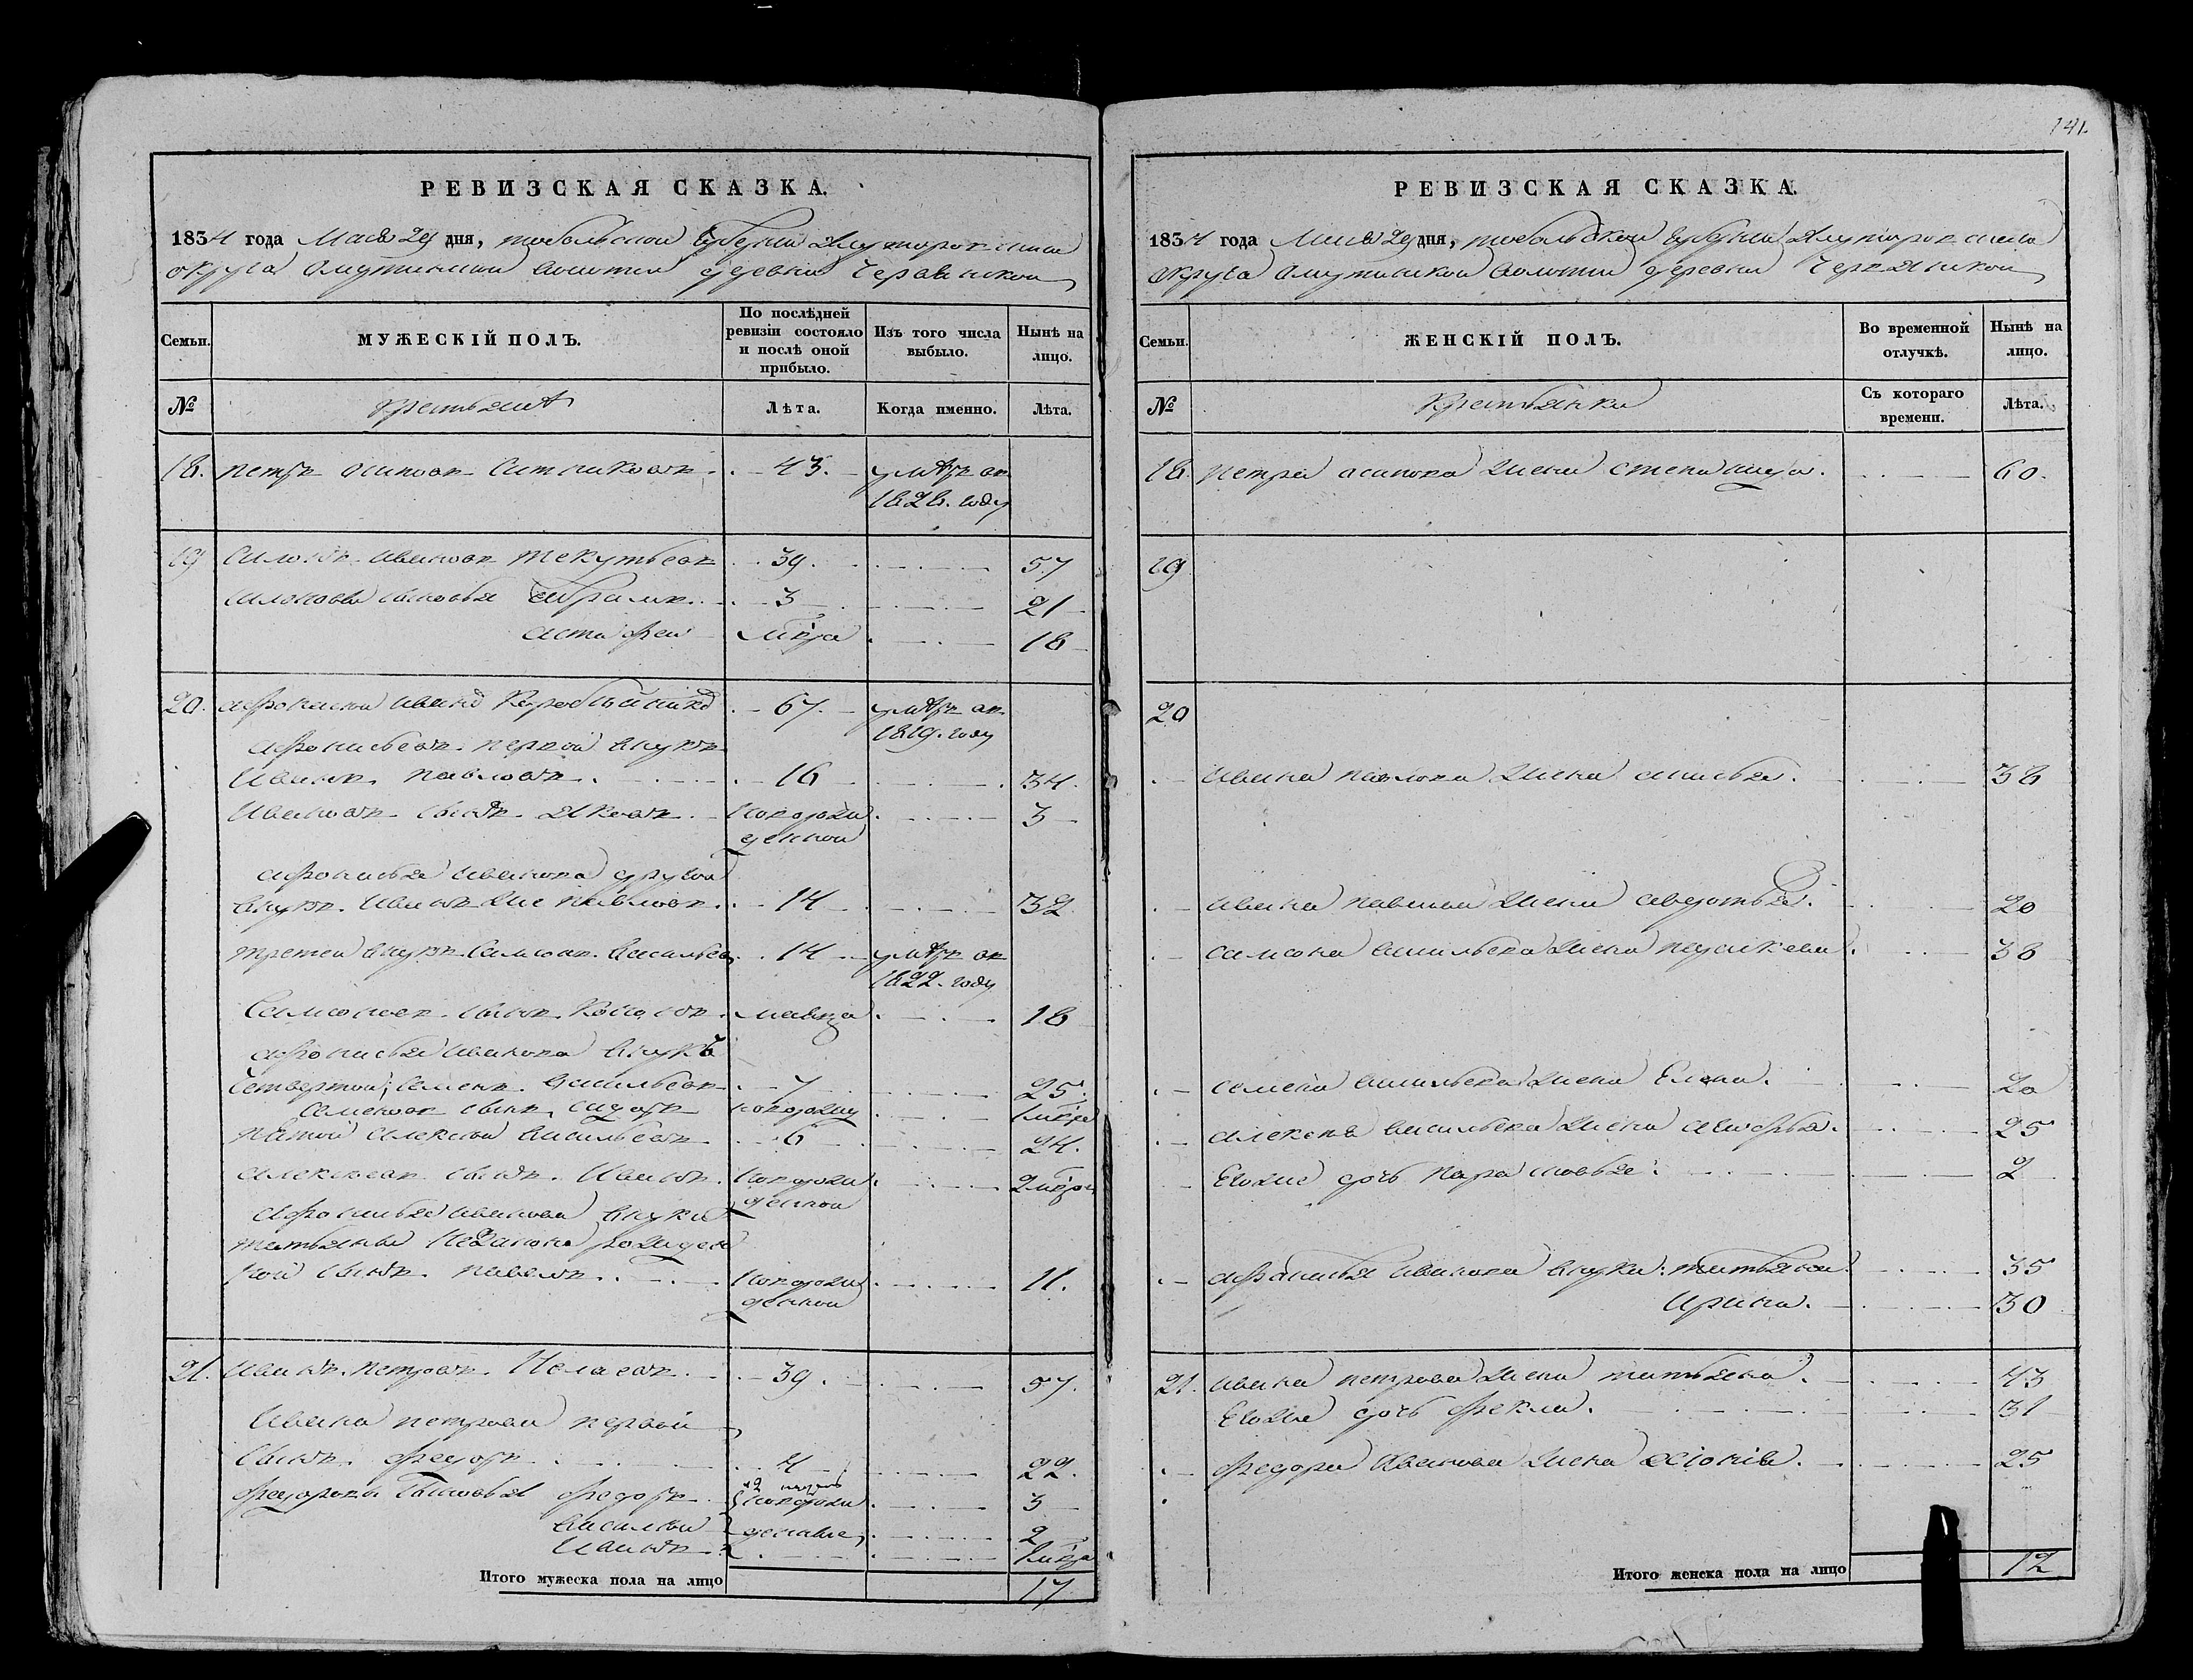 141.
РЕВИЗСКАЯ СКАЗКА.
1834 года Маія 29 дня, тобольской губерніи Ялуторовскаго
округа Омутинской волости деревни
Семьи. МУЖЕСКІЙ ПОЛЪ. По послѣдней ревизіи состояло и послѣ оной прибыло. Изъ того числа выбыло. Нынѣ на лицо.
№ крестьяне Лѣта. Когда именно. Лѣта.
18. петръ осиповъ Ситниковъ 43. умѣръ въ
1828. году
19 ивановъ текутьевъ 39. 57
сыновья абрамъ 3 21
астафеи 18
20. афонасеи иванъ 67. умѣръ въ
1819. году
афонасьевъ первой внукъ
Иванъ павловъ 16 34.
Ивановъ сынъ яковъ новорож 3
денной
афонасья иванова другой
внукъ. Иванъ же павловъ 14 32
третеи внукъ Самсонъ васильев 14 умѣръ въ
1822. году
Самсоновъ сынъ 18
афонасья иванова внукъ
четвертой; семенъ васильевъ 7 25
семеновъ сынъ сидоръ новорожд
пятой алексеи васильевъ 6 24.
алексеевъ сынъ Иванъ новорож
денной
афонасья иванова внуки
татьяны рожден
ной сынъ павелъ новорож 11.
денной
21. Иванъ петровъ 39. 57.
Ивана петрова первой
сынъ федоръ 4 22.
федоровы сыновья федоръ новорож 3
василеи денные 2
Иванъ
Итого мужеска пола на лицо 17
РЕВИЗСКАЯ СКАЗКА.
1834 года Маія 29 дня, тобольской губерніи Ялуторовскаго
округа Омутинской волости деревни
Семьи. ЖЕНСКІЙ ПОЛЪ. Во временной отлучкѣ. Нынѣ на лицо.
№ крестьянки Съ котораго времени. Лѣта.
18. петра осипова жена степанида. 60.
19
20
Ивана павлова жена 38
Ивана павлова жена авдотья. 20
самсона васильева жена 38
семена васильева жена Елена. 20
алексея васильева жена 25
Ево же дочь парасковья. 2
афонасья иванова внуки: татьяна 35
Ирина. 30
21. Ивана петрова жена татьяна. 43
Ево же дочь фекла. 31
федора Иванова жена 25
Итого женска пола на лицо 12